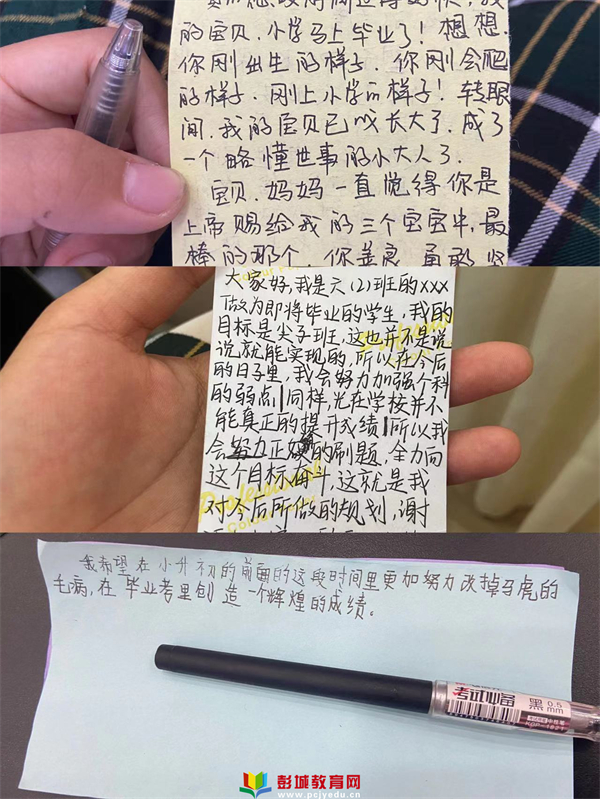 的宝贝.小学马上毕业了！想想.
你刚出生的样子.你刚会爬
的样子.刚上小学的样子！转眼
间.我的宝贝已成长大了.成了
一个略懂世事的小大人了.
宝贝.妈妈一直觉得你是
上帝赐给我的三个宝宝中,最
棒的那个.你善良.勇敢.
大家好,我是六(2)班的xxx
做为即将毕业的学生,我的
目标是尖子班,这也并不是说
说就能实现的,所以在今后
的日子里,我会努力加强个科
的弱点,同样,光在学校并不
能真正的提升成绩,所以我
会努力正的刷题,全力向
这个目标奋斗,这就是我
对今后所做的规划,谢
我希望在小升初的前面的这段时间里更加努力改掉马虎的
毛病,在毕业考里创造一个辉煌的成绩。
考试必备
黑 0.5
mm
彭城教育网
www.pcjyedu.cn